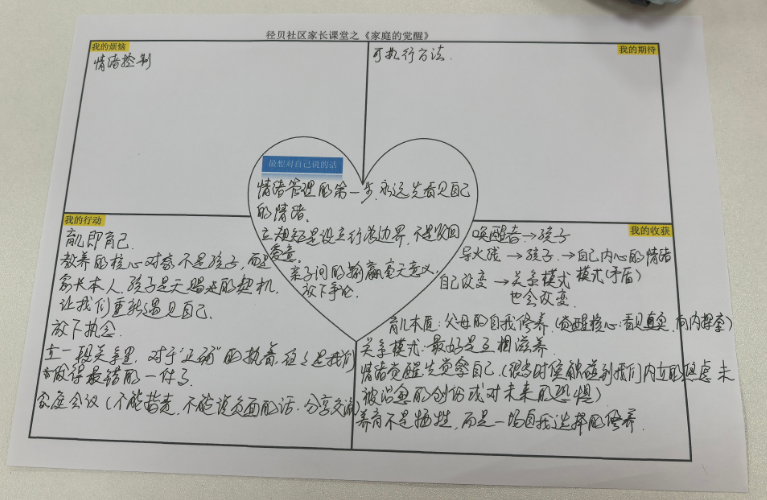 径贝社区家长课堂之《家庭的觉醒》
我的烦恼
情绪控制
我的期待
可执行方法
最想对自己说的话
情绪管理的第一步,永远先看见自己
的情绪。
立规矩是设立行为边界,不是
亲子间的输赢毫无意义,
放下争论。
我的行动
育儿即育己.
教养的核心对象不是孩子,而是
家长本人,孩子是天赐的契机,
让我们重新遇见自己.
放下执念.
在一段关系里,对于"正确"的执着,往往是我们
做得最错的一件事
家庭会议(不能指责,不能说负面的话.分享交流)
我的收获
唤醒者→孩子
导火线→孩子→自己内心的情绪
模式(矛盾)
自己改变→关系模式
也会改变.
育儿本质:父母的自我修养(觉醒核心:看见真实,向内探索)
关系模式:最好是互相滋养.
情绪觉醒先觉察自己(很多时候触碰到我们内在的焦虑未
被治愈的创伤或对未来的恐惧)
养育不是牺牲,而是一场自我选择的修养.